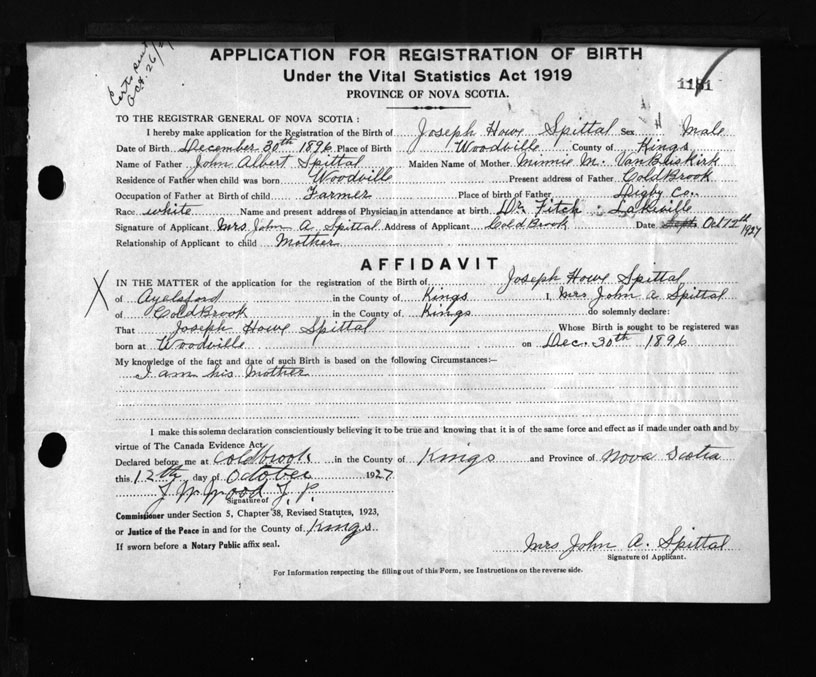 Certs sent
Oct. 26/27
APPLICATION FOR REGISTRATION OF BIRTH
Under the Vital Statistics Act 1919
PROVINCE OF NOVA SCOTIA.
1181
TO THE REGISTRAR GENERAL OF NOVA SCOTIA :
I hereby make application for the Registration of the Birth of Joseph Howe Spittal Sex Male
Date of Birth December 30th 1896 Place of Birth Woodville County of Kings
Name of Father John Albert Spittal Maiden Name of Mother Minnie M. VanBuskirk
Residence of Father when child was born Woodville Present address of Father ColdBrook
Occupation of Father at Birth of child Farmer Place of birth of Father Digby Co.
Race white Name and present address of Physician in attendance at birth Dr. Fitch : Lakeville
Signature of Applicant Mrs John A. Spittal Address of Applicant ColdBrook Date Oct 12th 1927
Relationship of Applicant to child Mother
AFFIDAVIT
IN THE MATTER of the application for the registration of the Birth of Joseph Howe Spittal
of Ayelsford in the County of Kings I, Mrs John A Spittal
of ColdBrook in the County of Kings do solemnly declare:
That Joseph Howe Spittal Whose Birth is sought to be registered was
born at Woodville on Dec. 30th 1896
My knowledge of the fact and date of such Birth is based on the following Circumstances:—
I am his Mother
I make this solemn declaration conscientiously believing it to be true and knowing that it is of the same force and effect as if made under oath and by
virtue of The Canada Evidence Act.
Declared before me at Coldbrook in the County of Kings and Province of Nova Scotia
this 12th day of October 1927
J W Wood J. P.
Signature of
Commissioner under Section 5, Chapter 38, Revised Statutes, 1923,
or Justice of the Peace in and for the County of Kings
If sworn before a Notary Public affix seal.
Mrs John A. Spittal
Signature of Applicant.
For Information respecting the filling out of this Form, see Instructions on the reverse side.